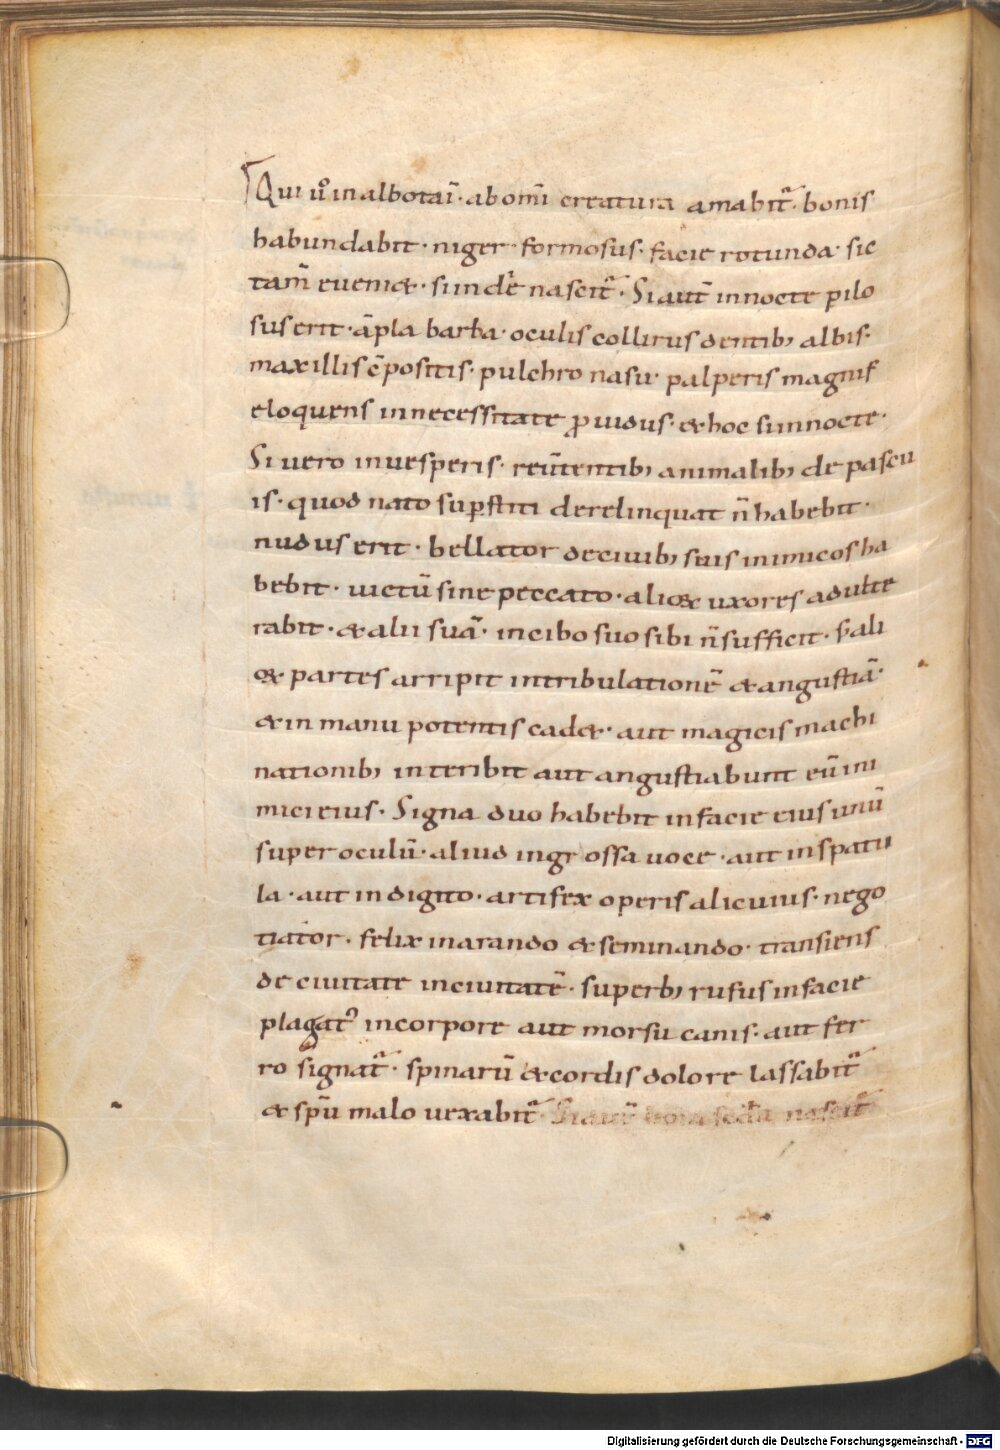 Qui ů in albotaī · ab om̄i creatura amabit᷑ · bonis
habundabit · niger · formosus · facie rotunda · sic
tam̄ eueni& · si in die nascit᷑ · Si aut̄ in nocte pilo
sus erit · āpla barba · oculis collirus dentib; albis ·
maxillis c̄positis · pulchro nasu · palperis magnis
eloquens in necessitate ꝓuidus · & hoc si in nocte ·
Si uero in uesperis · reūtentib; animalib; de pascu
is · quod nato suꝑstiti derelinquat n̄ habebit ·
nudus erit · bellator de ciuib; suis inimicos ha
bebit · uictū sine peccato · alioꝝ uxores adulte
rabit · & alii suā · in cibo suo sibi n̄ sufficit · s; ali
oꝝ partes arripit in tribulationē & angustiā ·
& in manu potentis cad& · aut magicis machi
nationib; interibit aut angustiabunt eū ini
mici eius · Signa duo habebit in facie eius unū
super oculū · aliud in grossa uoce · aut in spatu
la · aut in digito · artifex operis alicuius · nego
tiator · felix in arando & seminando · transiens
de ciuitate in ciuitatē · superb; rufus in facie
plagat᾿ in corpore aut morsu canis · aut fer
ro signat᷑ · spinarū & cordis dolore lassabit᷑
& sp̄u malo uexabit᷑ · Si aut̄ hora sc̄da nascit᷑
Digitalisierung gefördert durch die Deutsche Forschungsgemeinschaft - DFG